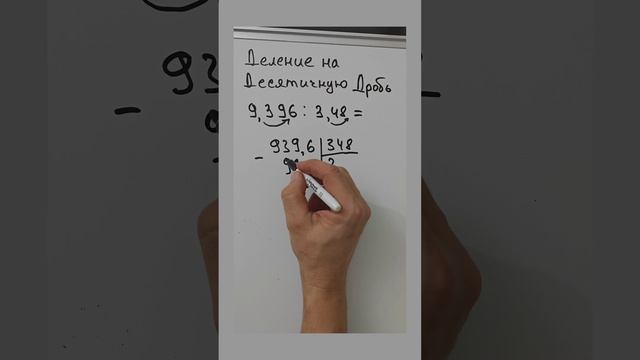 Деление на
Десятичную Дробь
9,396 : 3,48 =
- 939,6 | 348